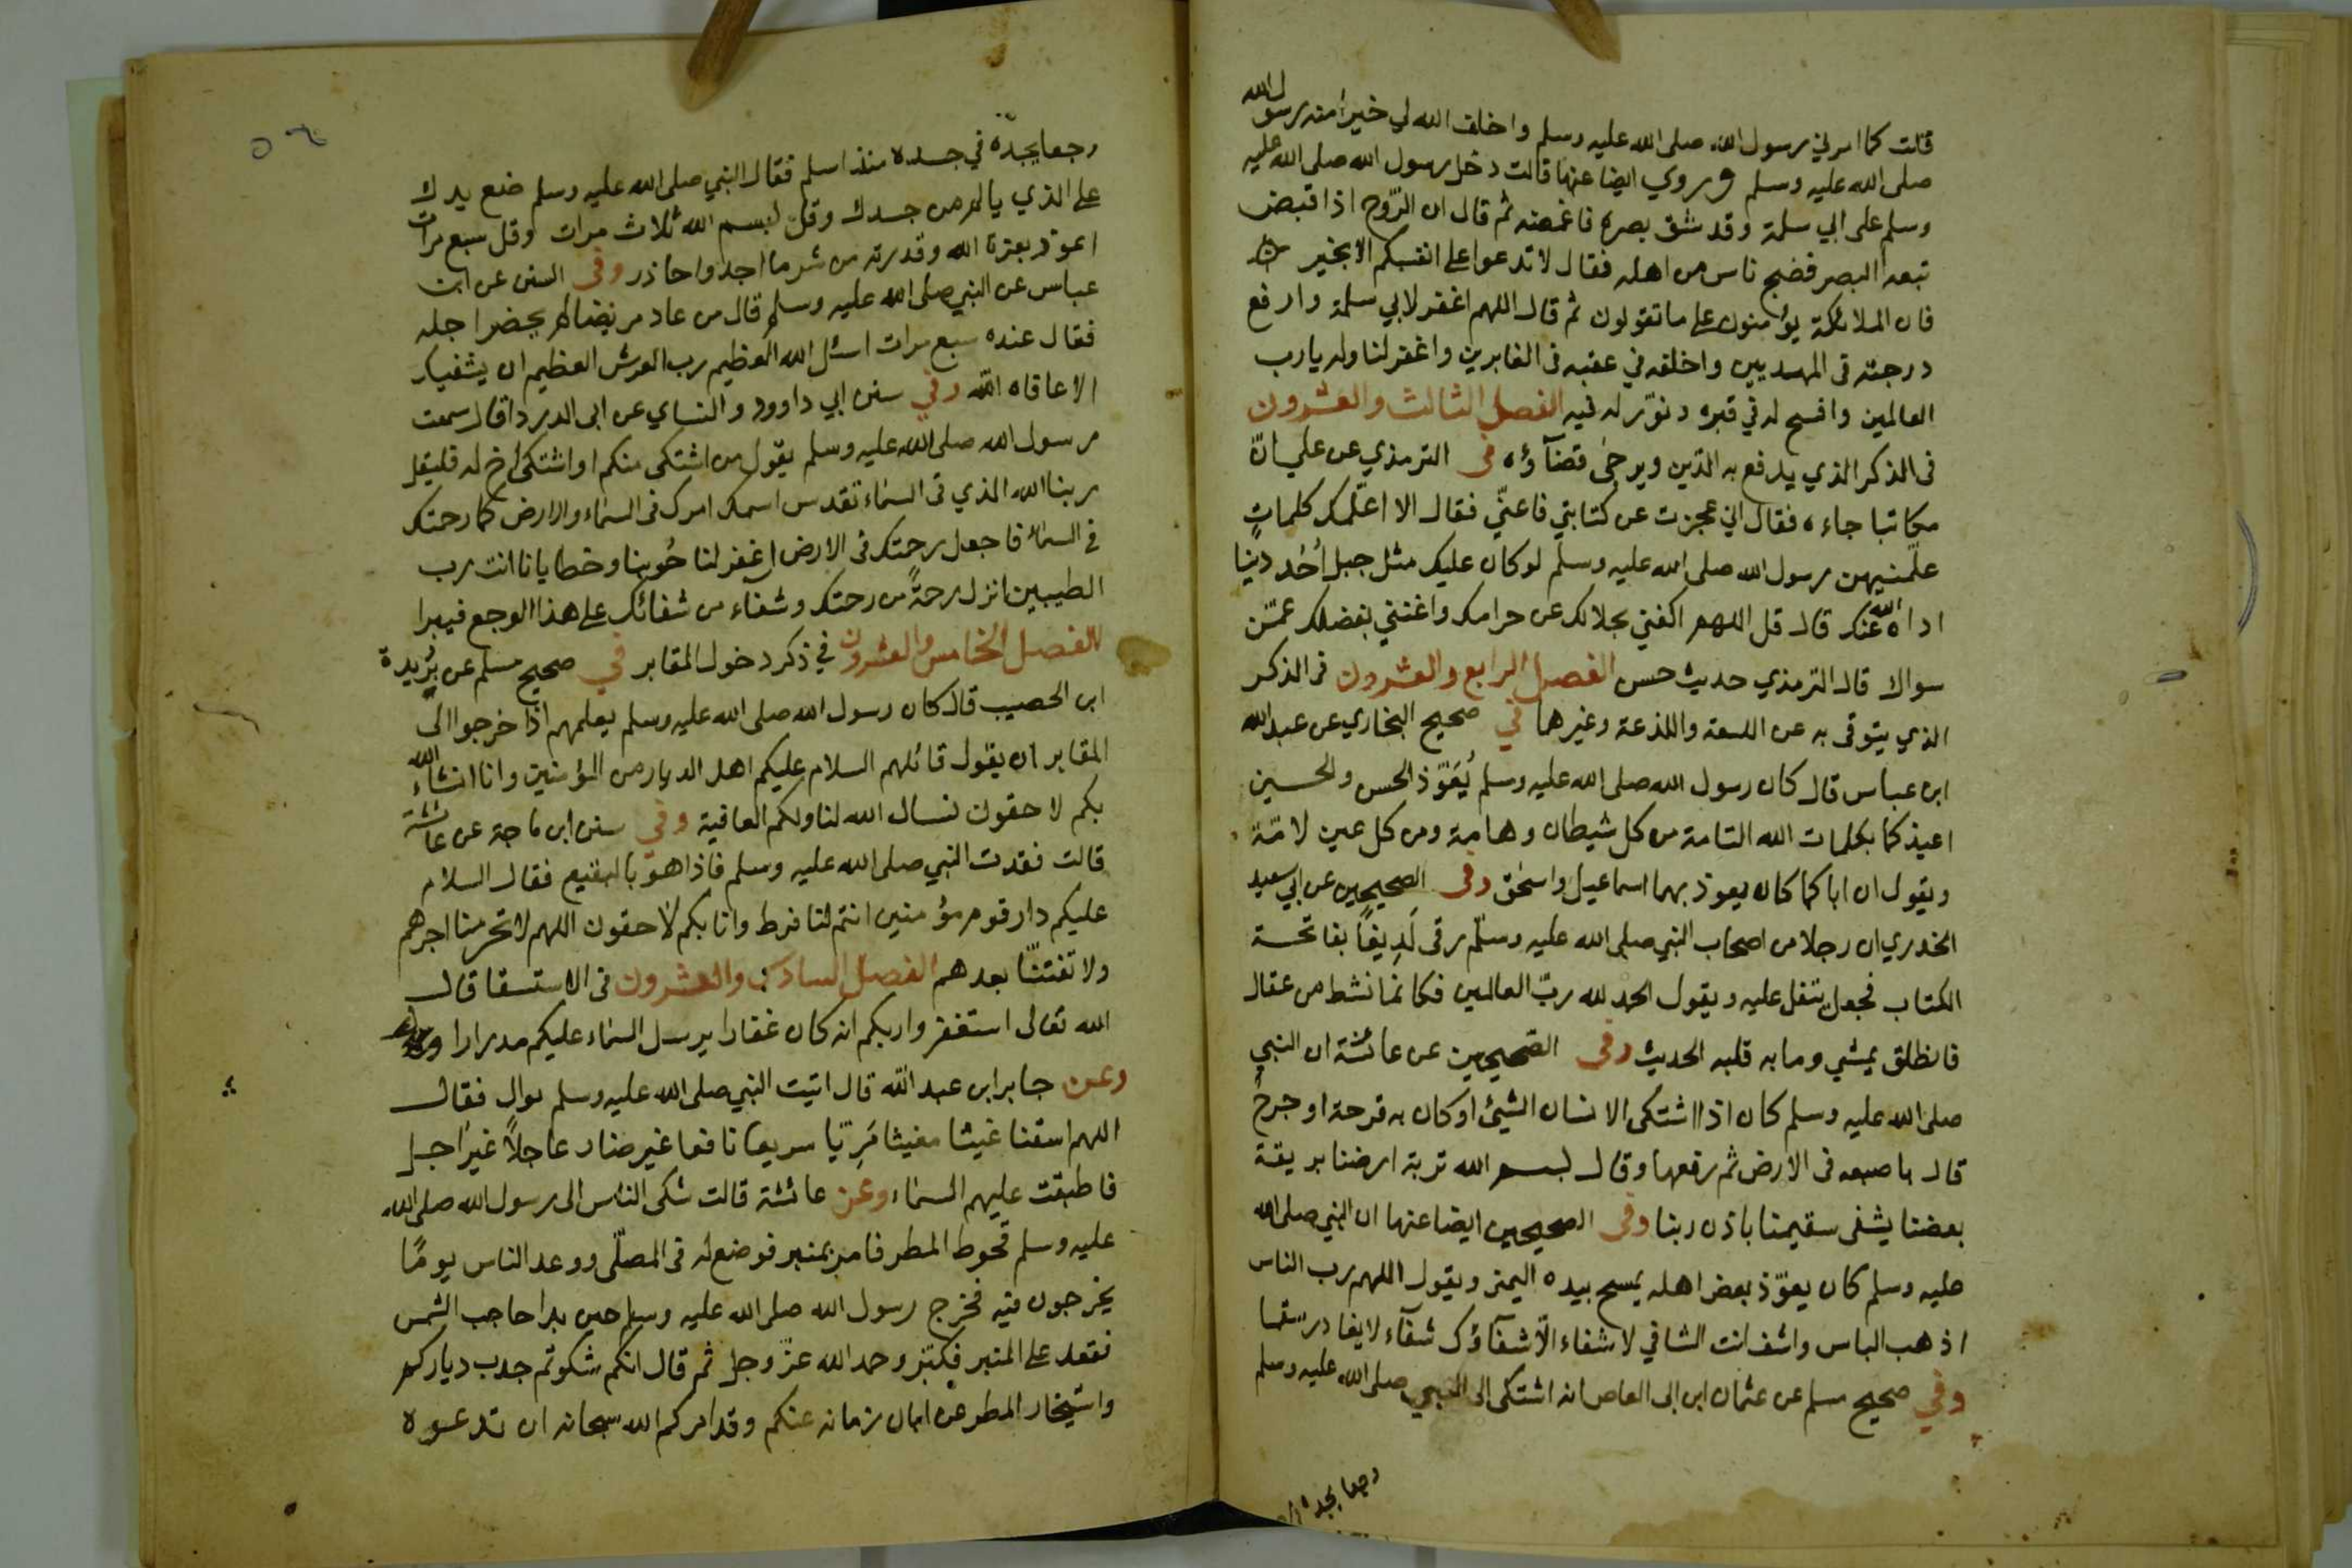 قلت كما امرني رسول الله صلى الله عليه وسلم واخلف الله لي خيرا منه رسول الله
صلى الله عليه وسلم وروي ايضا عنها قالت دخل رسول الله صلى الله عليه
وسلم على ابي سلمة وقد شق بصره فاغمضه ثم قال ان الرّوح اذا قبض
تبعه البصر فضج ناس من اهله فقال لا تدعوا على انفسكم الا بخير
فان الملائكة يؤمنون على ما تقولون ثم قال اللهم اغفر لابي سلمة وارفع
درجته في المهديين واخلفه في عقبه في الغابرين واغفر لنا وله يا رب
العالمين وافسح له في قبره ونوّر له فيه الفصل الثالث والعشرون
في الذكر الذي يدفع به الدّين ويرجى قضآؤه في الترمذي عن علي انّ
مكاتبا جاءه فقال اني عجزت عن كتابتي فاعنّي فقال الا اعلّمك كلماتٍ
علّمنيهن رسول الله صلى الله عليه وسلم لو كان عليك مثل جبل اُحُد دينا
اداه الله عنك قال قل اللهم اكفني بحلالك عن حرامك واغنني بفضلك عمّن
سواك قال الترمذي حديث حسن الفصل الرابع والعشرون في الذكر
الذي يتوقى به عن اللسعة واللذعة وغيرهما في صحيح البخاري عن عبد الله
ابن عباس قال كان رسول الله صلى الله عليه وسلم يُعَوّذ الحسن والحسين
اعيذكما بكلمات الله التامة من كل شيطان وهامة ومن كل عين لامّة
ويقول ان اباكما كان يعوذ بهما اسماعيل واسحق وفي الصحيحين عن ابي سعيد
الخدري ان رجلا من اصحاب النبي صلى الله عليه وسلّم رقى لَدِيغًا بفاتحة
الكتاب فجعل يتفل عليه ويقول الحمد لله ربّ العالمين فكانما نشط من عقال
فانطلق يمشي وما به قلبه الحديث وفي الصّحيحين عن عائشة ان النبي
صلى الله عليه وسلم كان اذا اشتكى الانسان الشيئ او كان به قرحة او جرحٌ
قال باصبعه في الارض ثم رفعها وقال بسم الله تربة ارضنا بريقة
بعضنا يشفى سقيمنا باذن ربنا وفي الصحيحين ايضا عنها ان النبي صلى الله
عليه وسلم كان يعوّذ بعض اهله يمسح بيده اليمنى ويقول اللهم رب الناس
اذهب الباس واشف انت الشافي لا شفاء الّا شفآؤك شفآء لا يغادر سقما
وفي صحيح مسلم عن عثمان ابن ابي العاص انه اشتكى الى النبي صلى الله عليه وسلم
وجعا يجده
وجعا يجدة في جسده منذ اسلم فقال النبي صلى الله عليه وسلم ضع يدك
على الذي يالم من جسدك وقل بسم الله ثلاث مرات وقل سبع مرات
اعوذ بعزة الله وقدرته من شر ما اجد واحاذر وفي السنن عن ابن
عباس عن النبي صلى الله عليه وسلم قال من عاد مريضا لم يحضر اجله
فقال عنده سبع مرات اسئل الله العظيم رب العرش العظيم ان يشفيك
الا عافاه الله وفي سنن ابي داوود والنساي عن ابي الدرداء قال سمعت
رسول الله صلى الله عليه وسلم يقول من اشتكى منكم او اشتكى اخ له فليقل
ربنا الله الذي في السماء تقدس اسمك امرك في السماء والارض كما رحمتك
في السماء فاجعل رحمتك في الارض اغفر لنا حُوبنا وخطايانا انت رب
الطيبين انزل رحمةً من رحمتك وشفاء من شفائك على هذا الوجع فيبرا
الفصل الخامس والعشرون في ذكر دخول المقابر في صحيح مسلم عن بُرَيدة
ابن الحصيب قال كان رسول الله صلى الله عليه وسلم يعلمهم اذا خرجوا الى
المقابر ان يقول قائلهم السلام عليكم اهل الديار من المؤمنين وانا انشاء الله
بكم لاحقون نسال الله لنا ولكم العافية وفي سنن ابن ماجة عن عائشة
قالت فقدت النبي صلى الله عليه وسلم فاذا هو بالبقيع فقال السلام
عليكم دار قوم مؤمنين انتم لنا فرط وانا بكم لاحقون اللهم لا تحرمنا اجرهم
ولا تفتنّا بعدهم الفصل السادس والعشرون في الاستسقا قال
الله تعالى استغفروا ربكم انه كان غفارا يرسل السماء عليكم مدرارا
وعن جابر ابن عبد الله قال اتيت النبي صلى الله عليه وسلم بوال فقال
اللهم اسقنا غيثا مغيثا مَرِيّا سريعا نافعا غير ضار عاجلاً غير اجل
فاطبقت عليهم السماء وعن عائشة قالت شكى الناس الى رسول الله صلى الله
عليه وسلم قحوط المطر فامر بمنبر فوضع له في المصلّى ووعد الناس يومًا
يخرجون فيه فخرج رسول الله صلى الله عليه وسلم حين بدا حاجب الشمس
فقعد على المنبر فكبّر وحمد الله عزّ وجل ثم قال انكم شكوتم جدب دياركم
واستيخار المطر عن ابان زمانه عنكم وقد امركم الله سبحانه ان تدعوه